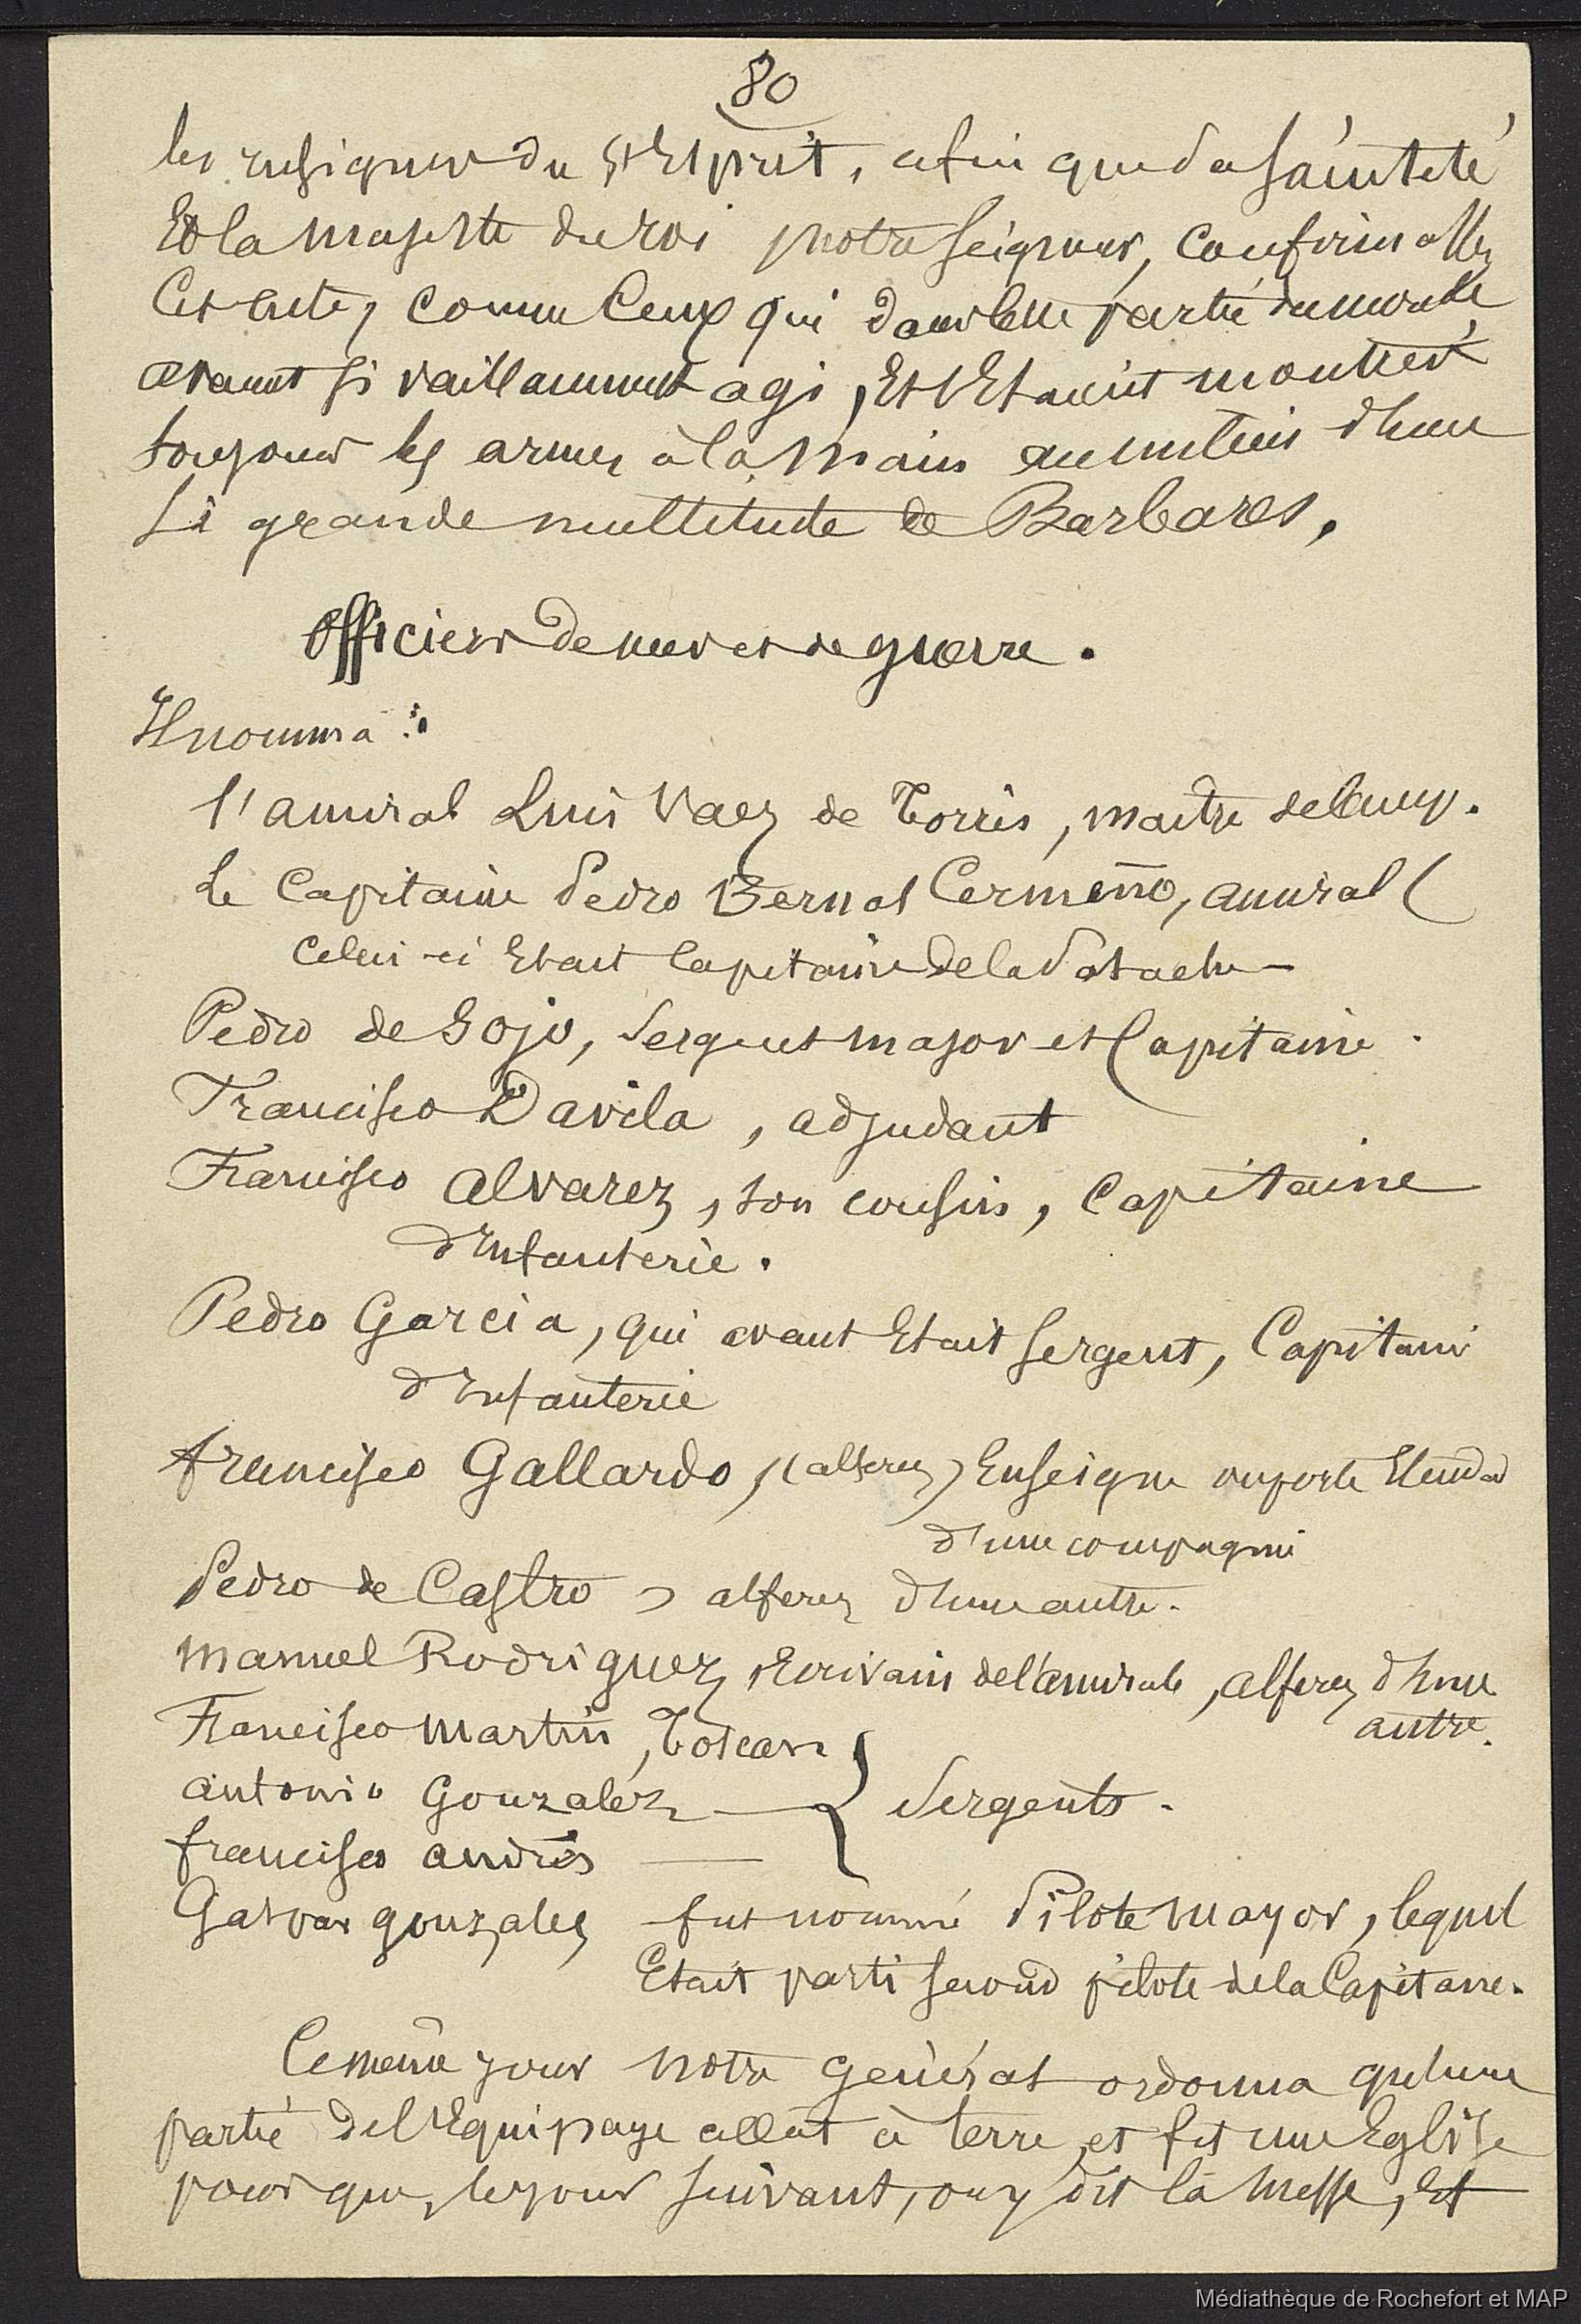 80
les enseignes du St Esprit, afin que Sa Sainteté
Et la majesté du roi notre Seigneur, confirmassent
Ces actes, comme Ceux qui dans cette partie du monde
avaient si vaillamment agi, Et s'Etaient montrés
toujours les armes à la main au milieu d'hune
Si grande multitude de Barbares,
Officiers de mer et de guerre.
Il nomma :
l'amiral Luis Vaez de Torrès, maitre de camp.
Le Capitaine Pedro Bernal Cermeño, amiral (
Celui-ci Etait Capitaine de la Patache -
Pedro de Sojo, Sergent major et Capitaine.
Francisco Davila, adjudant
Francisco Alvarez, son cousin, Capitaine
d'Infanterie.
Pedro Garcia, qui avant Etait Sergent, Capitaine
d'Infanterie
francisco Gallardo, (alferez) Enseigne ou porte Etendard
d'une compagnie
Pedro de Castro, alferez d'hune autre.
Manuel Rodriguez, Ecrivain de l'amirale, alferez d'hune
autre.
Francisco Martin, Toscan
antonio Gonzalez - Sergents.
francisco andrès —
Gaspar gonzalez fut nommé Pilote mayor, lequel
Etait parti second pilote de la Capitane.
Ce même jour notre général ordonna qu'hune
partie de l'Equipage allât à terre, et fit une Eglise
pour que, le jour suivant, on y dit la messe, Et
Médiathèque de Rochefort et MAP